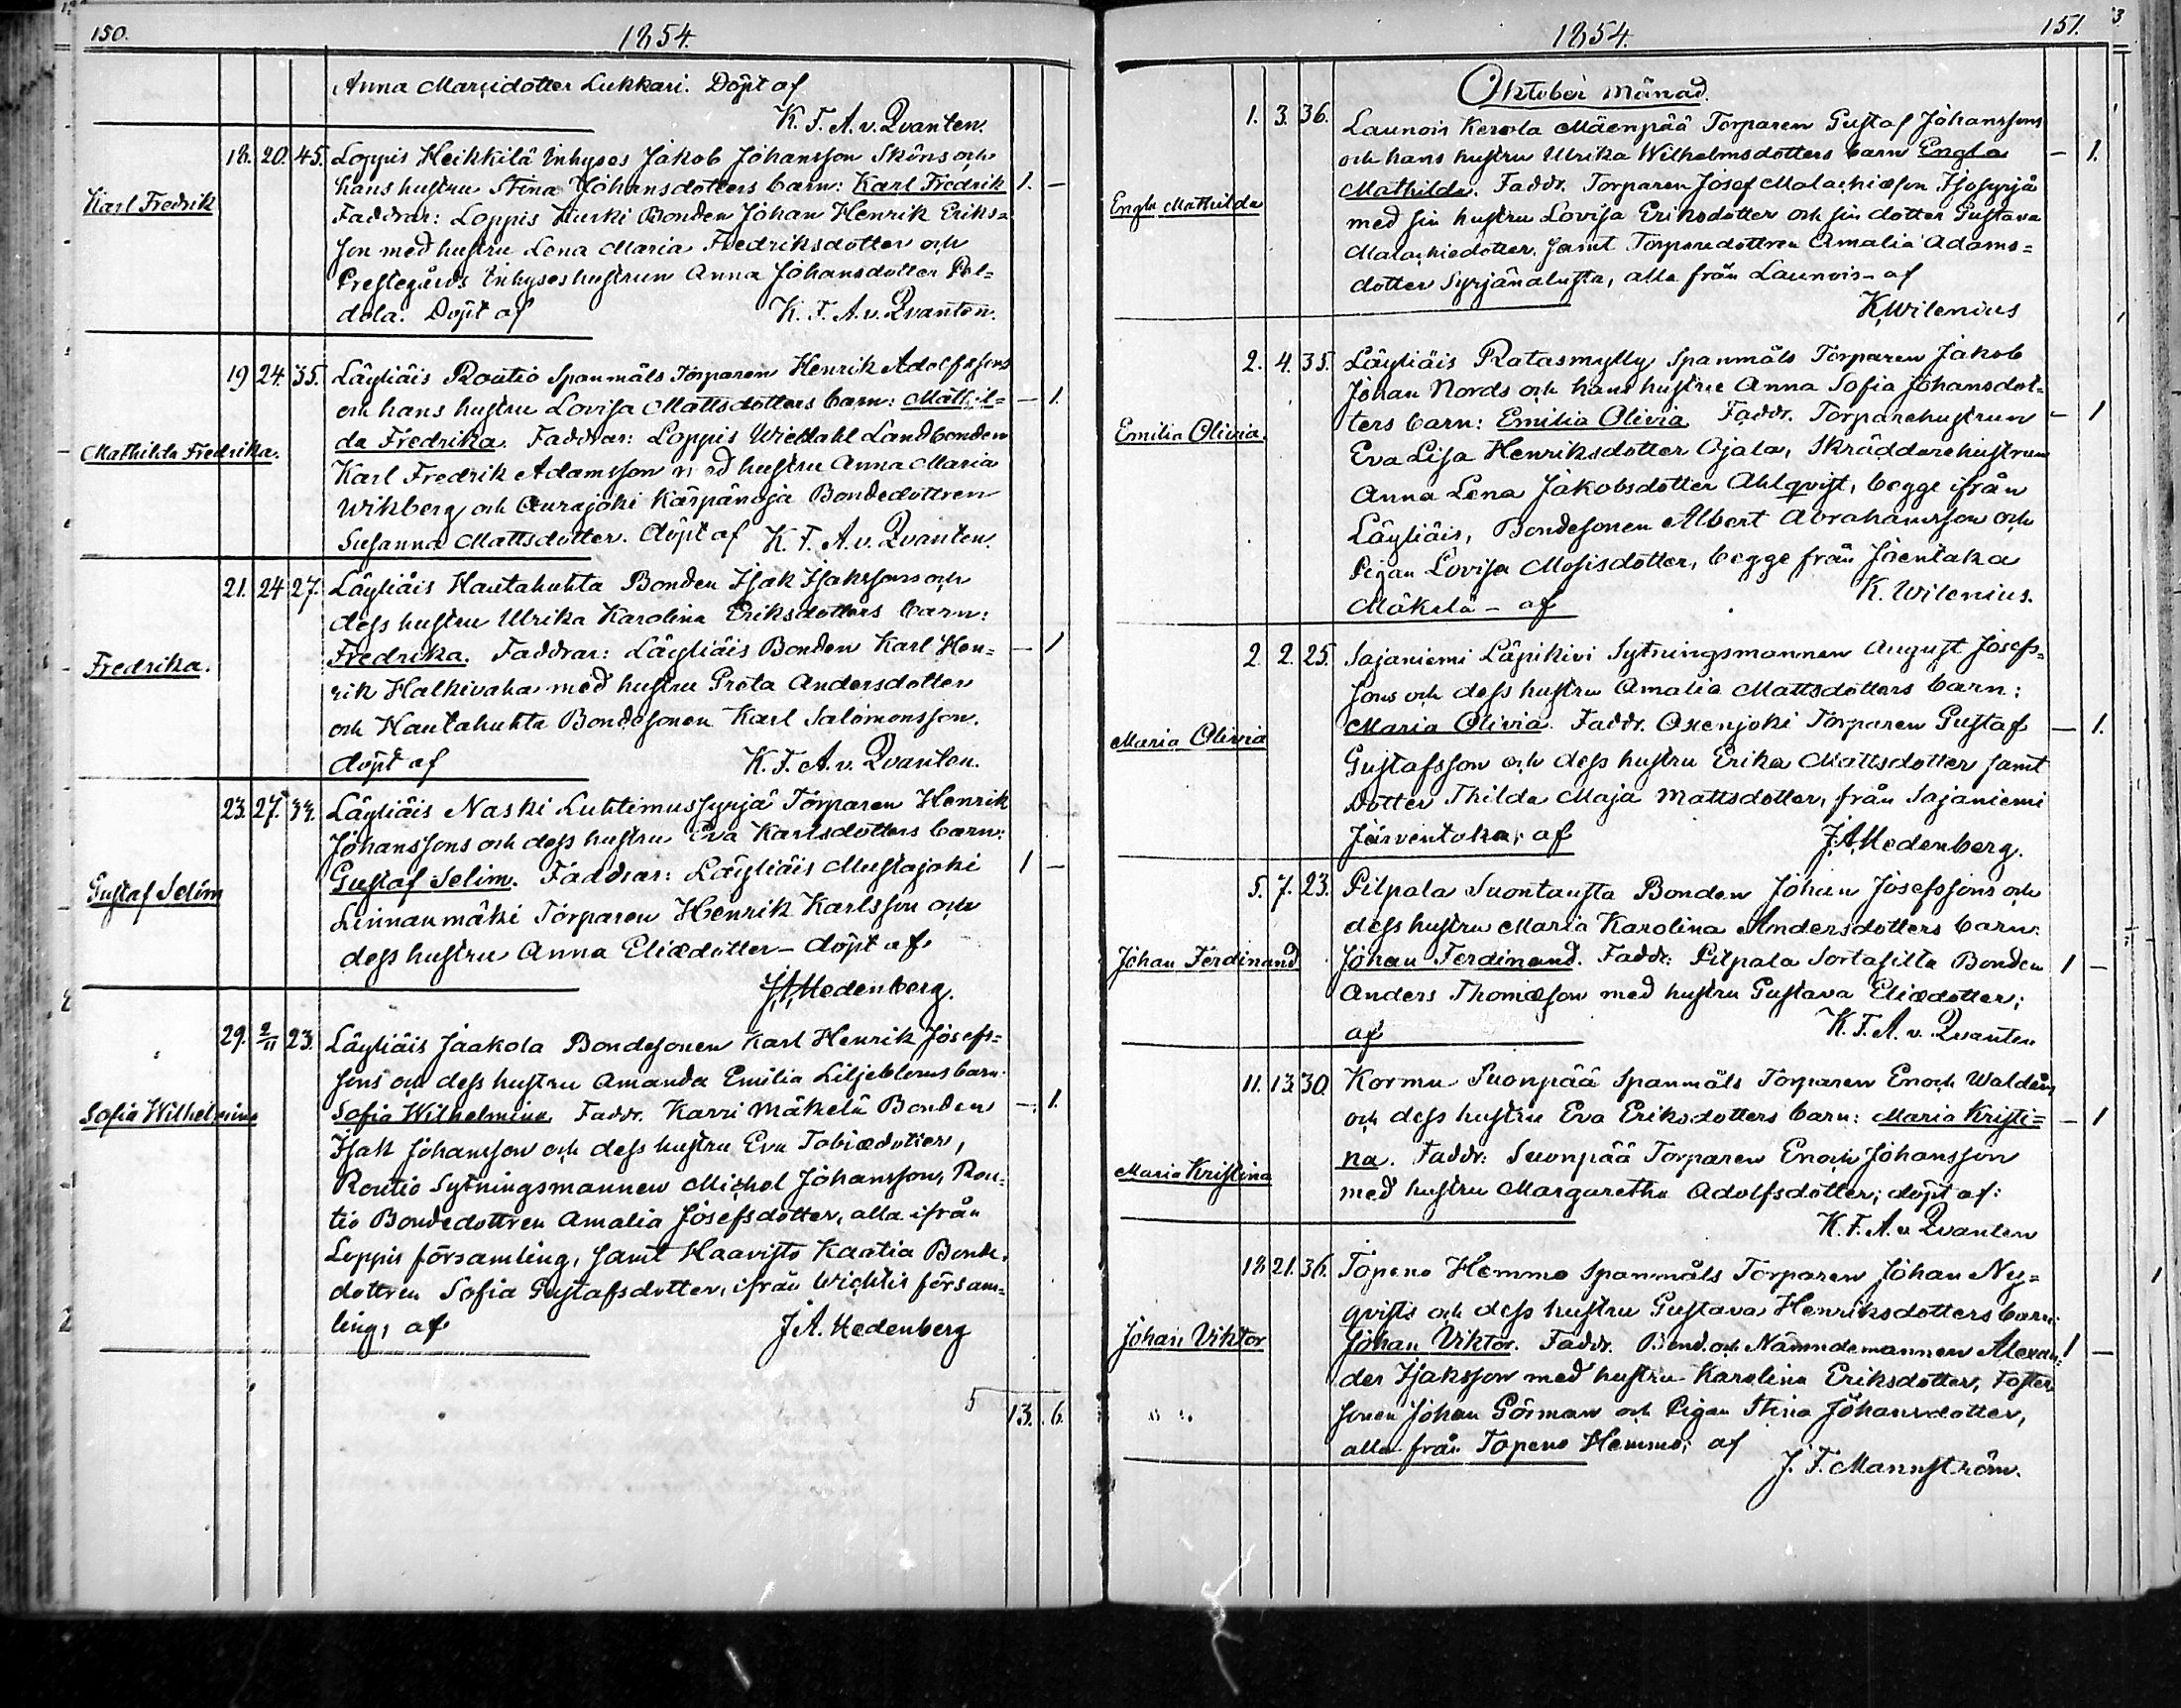 150.
1854.
Anna Marcidotter Lukkari. Döpt af
K. F. A. v. Qvanten.
18. 20. 45. Loppis Heikkilä Inhyses Jakob Johansson Sköns och
hans hustru Stina Johansdotters barn: Karl Fredrik 1. —
Karl Fredrik
Faddrar: Loppis Kurki Bonden Johan Henrik Eriks=
son med hustru Lena Maria Fredriksdotter och
Prestegårds Inhyseshustrun Anna Johansdotter Pel=
dola. Döpt af K. F. A. v. Qvanten.
19 24. 35. Läyliäis Routio Spanmåls Torparen Henrik Adolfssons
och hans hustru Lovisa Mattsdotters barn: Mathil= — 1.
da Fredrika. Faddrar: Loppis Landbonden
Mathilda Fredrika.
Karl Fredrik Adamsson med hustru Anna Maria
Wikberg och Aurajoki Kärpänoja Bondedottren
Susanna Mattsdotter. döpt af K. F. A. v. Qvanten.
21. 24 27. Läyliäis Hautakuhta Bonden Isak Isakssons och
dess hustru Ulrika Karolina Eriksdotters barn:
Fredrika. Faddrar: Läyliäis Bonden Karl Hen= — 1
Fredrika.
rik Halkivaha med hustru Greta Andersdotter
och Hautakuhta Bondesonen Karl Salomonsson.
döpt af K. F. A. v. Qvanten.
23. 27. 34. Läyliäis Naski Luhtimussyrjä Torparen Henrik
Johanssons och dess hustru Eva Karlsdotters barn:
Gustaf Selim. Faddrar: Läyliäis Mustajoki 1 —
Gustaf Selim
Linnanmäki Torparen Henrik Karlsson och
dess hustru Anna Eliædotter — döpt af
J. A. Hedenberg.
29. 2/11 23. Läyliäis Jaakola Bondesonen Karl Henrik Josefs=
sons och dess hustru Amanda Emilia Liljebloms barn
Sofia Wilhelmina. Faddr. Karri Mäkelä Bonden — 1.
Sofia Wilhelmina
Isak Johansson och dess hustru Eva Tobiædotter,
Routio Sytningsmannen Michel Johansson, Rou=
tio Bondedottren Amalia Josefsdotter, alla ifrån
Loppis församling, samt Haavisto Kaatia Bonde=
dottren Sofia Gustafsdotter, ifrån Wichtis försam=
ling, af J. A. Hedenberg
5
13. 6.
1854.
151.
Oktober månad.
1. 3. 36. Launois Kerola Mäenpää Torparen Gustaf Johanssons
och hans hustru Ulrika Wilhelmsdotters barn Engla — 1.
Engla Mathilda
Mathilda. Faddr. Torparen Josef Malachiæson Isosyrjä
med sin hustru Lovisa Eriksdotter och sin dotter Gustava
Malachiedotter, samt Torparedottren Amalia Adams=
dotter Syrjänalusta, alla från Launois — af
K. Wilenius
2. 4. 35. Läyliäis Ratasmylly Spanmåls Torparen Jakob
Johan Nords och hans hustru Anna Sofia Johansdot=
ters barn: Emilia Olivia Faddr. Torparehustrun — 1
Emilia Olivia.
Eva Lisa Henriksdotter Ojala, Skräddarehustrun
Anna Lena Jakobsdotter Ahlqvist, begge ifrån
Läyliäis, Bondesonen Albert Abrahamsson och
Pigan Lovisa Mosisdotter, begge från Jäentaka
Mäkelä — af K. Wilenius.
2. 2. 25. Sajaniemi Läpikivi Sytningsmannen August Josefs=
sons och dess hustru Amalia Mattsdotters barn:
Maria Olivia. Faddr. Oxenjoki Torparen Gustaf — 1.
Maria Olivia
Gustafsson och dess hustru Erika Mattsdotter samt
dotter Thilda Maja Mattsdotter, från Sajaniemi
Järventaka; af J. A. Hedenberg.
5. 7. 23. Pilpala Suontausta Bonden Johan Josefssons och
dess hustru Maria Karolina Andersdotters barn:
Johan Ferdinand
Johan Ferdinand. Faddr: Pilpala Sortasilta Bonden 1 —
Anders Thomæson med hustru Gustava Eliædotter;
af K. F. A. v. Qvanten
11. 13. 30. Kormu Suonpää Spanmåls Torparen Enoch Waldéns
och dess hustru Eva Eriksdotters barn: Maria Kristi= — 1
na. Faddr: Suonpää Torparen Enoch Johansson
Maria Kristina
med hustru Margaretha Adolfsdotter; döpt af:
K. F. A. v. Qvanten
18. 21. 36. Topeno Hemmo Spanmåls Torparen Johan Ny=
qvists och dess hustru Gustava Henriksdotters barn:
Johan Viktor
Johan Viktor. Faddr. Bond. och Nämndemannen Alexan= 1 —
der Isaksson med hustru Karolina Eriksdotter, Foster
sonen Johan Görman och Pigan Stina Johansdotter,
alla från Topeno Hemmo; af
J. F. Mannström.